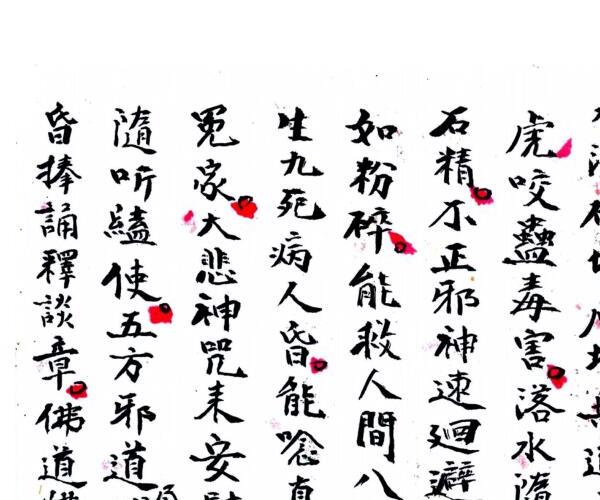 虎咬蠱毒害落水隨
石精不正邪神速迴避
如粉碎能救人間八
生九死病人昏能喰
冤家大悲神咒来安
隨听縊使五方邪道
昏捧誦釋談章佛道